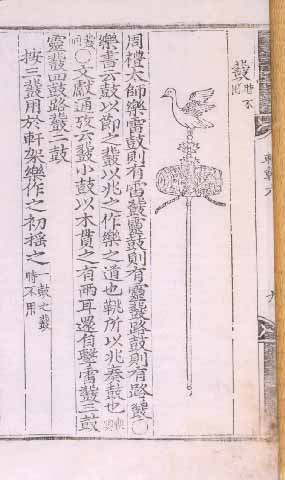 鼗 時不用
周禮太師樂雷鼓則有雷鼗靈鼓則有靈鼗路鼓則有路鼗〇
樂書云鼓以節之鼗以兆之作樂之道也鞉所以兆奏鼓也 與
鼗同〇文獻通攷云鼗小鼓以木貫之有兩耳還自擊雷鼗三鼓
靈鼗四鼓路鼗二鼓
按三鼗用於軒架樂作之初搖之 一鼓之鼗時不用